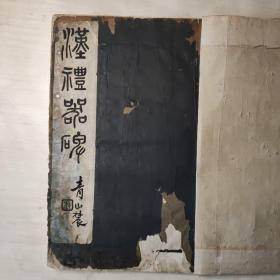 漢禮器碑
青山農